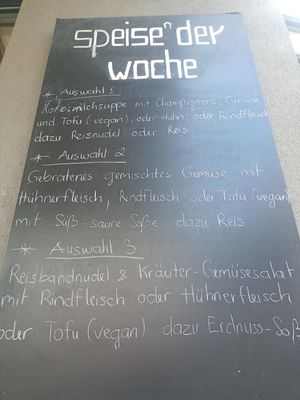 speiseⁿ der
woche
* Auswahl 1
Kokosmilchsuppe mit Champignons, Gemüse
und Tofu (vegan), oder Huhn, oder Rindfleisch
dazu Reisnudel oder Reis
* Auswahl 2
Gebratenes gemischtes Gemüse mit
Hühnerfleisch, Rindfleisch oder Tofu (vegan)
mit Süß-saure Soße dazu Reis
* Auswahl 3
Reisbandnudel & Kräuter-Gemüsesalat
mit Rindfleisch oder Hühnerfleisch
oder Tofu (vegan) dazu Erdnuss-Soß